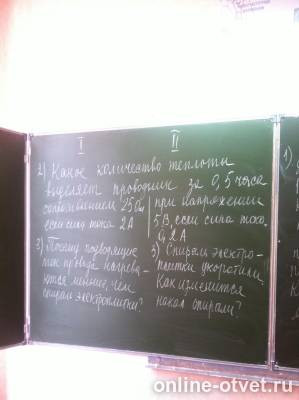 I II
2) Какое количество теплоты
выделяет проводник за 0,5 часа
сопротивлением 25 Ом при напряжении
если сила тока 2А 5В, если сила тока
0,2А
3) Почему подводящие 3) Спираль электро-
ток провода нагрева- плитки укоротили.
ются меньше, чем Как изменится
спираль электроплитки? накал спирали?
1)
online-otvet.ru